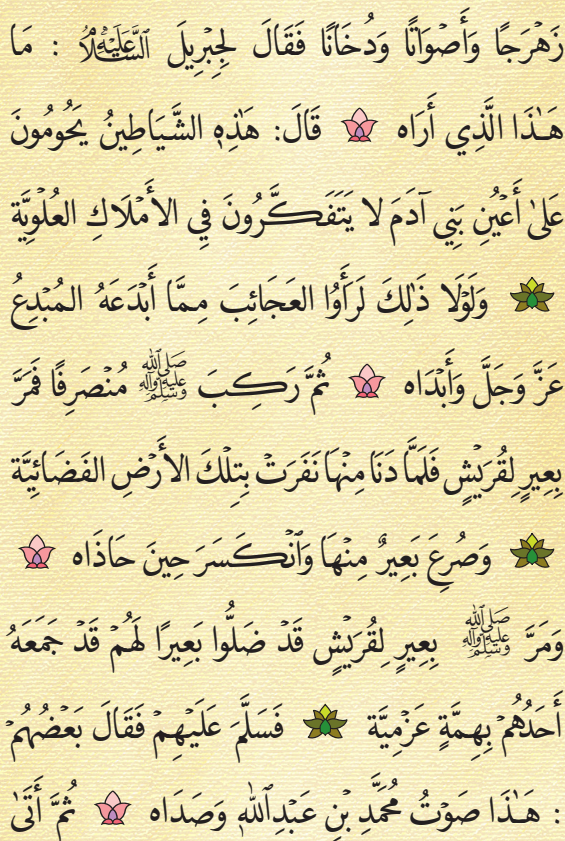 زَهْرَجًا وَأَصْوَاتًا وَدُخَانًا فَقَالَ لِجِبْرِيلَ عَلَيْهِ السَّلَامُ : مَا
هَـٰذَا الَّذِي أَرَاه قَالَ: هَٰذِهِ الشَّيَاطِينُ يَحُومُونَ
عَلىٰ أَعْيُنِ بَنِي آدَمَ لا يَتَفَكَّرُونَ فِي الأَمْلَاكِ العُلْوِيَّة
وَلَوْلَا ذَٰلِكَ لَرَأَوُا العَجَائِبَ مِمَّا أَبْدَعَهُ المُبْدِعُ
عَزَّ وَجَلَّ وَأَبْدَاه ثُمَّ رَكِبَ ﷺ مُنْصَرِفًا فَمَرَّ
بِعِيرٍ لِقُرَيْشٍ فَلَمَّا دَنَا مِنْهَا نَفَرَتْ بِتِلْكَ الأَرْضِ الفَضَائِيَّة
وَصُرِعَ بَعِيرٌ مِنْهَا وَٱنْكَسَرَ حِينَ حَاذَاه
وَمَرَّ ﷺ بِعِيرٍ لِقُرَيْشٍ قَدْ ضَلُّوا بَعِيرًا لَهُمْ قَدْ جَمَعَهُ
أَحَدُهُمْ بِهِمَّةٍ عَزْمِيَّة فَسَلَّمَ عَلَيْهِمْ فَقَالَ بَعْضُهُمْ
: هَـٰذَا صَوْتُ مُحَمَّدِ بْنِ عَبْدِٱللهِ وَصَدَاه ثُمَّ أَتَىٰ